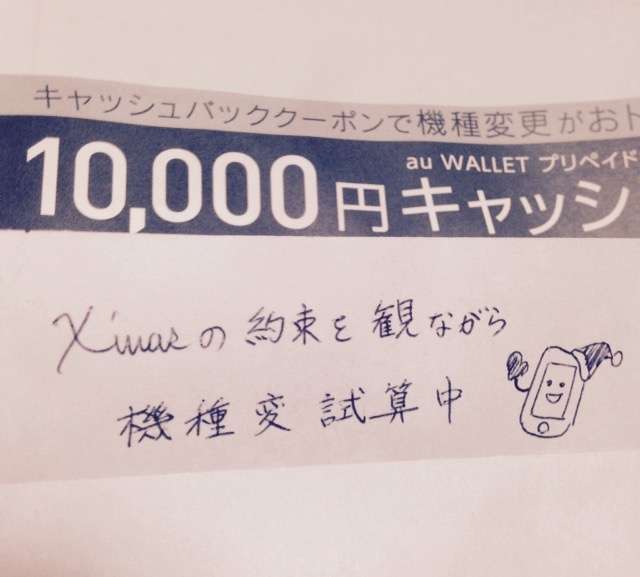 キャッシュバッククーポンで機種変更がおト
au WALLET プリペイド
10,000円キャッシ
X'masの約束を観ながら
機種変試算中